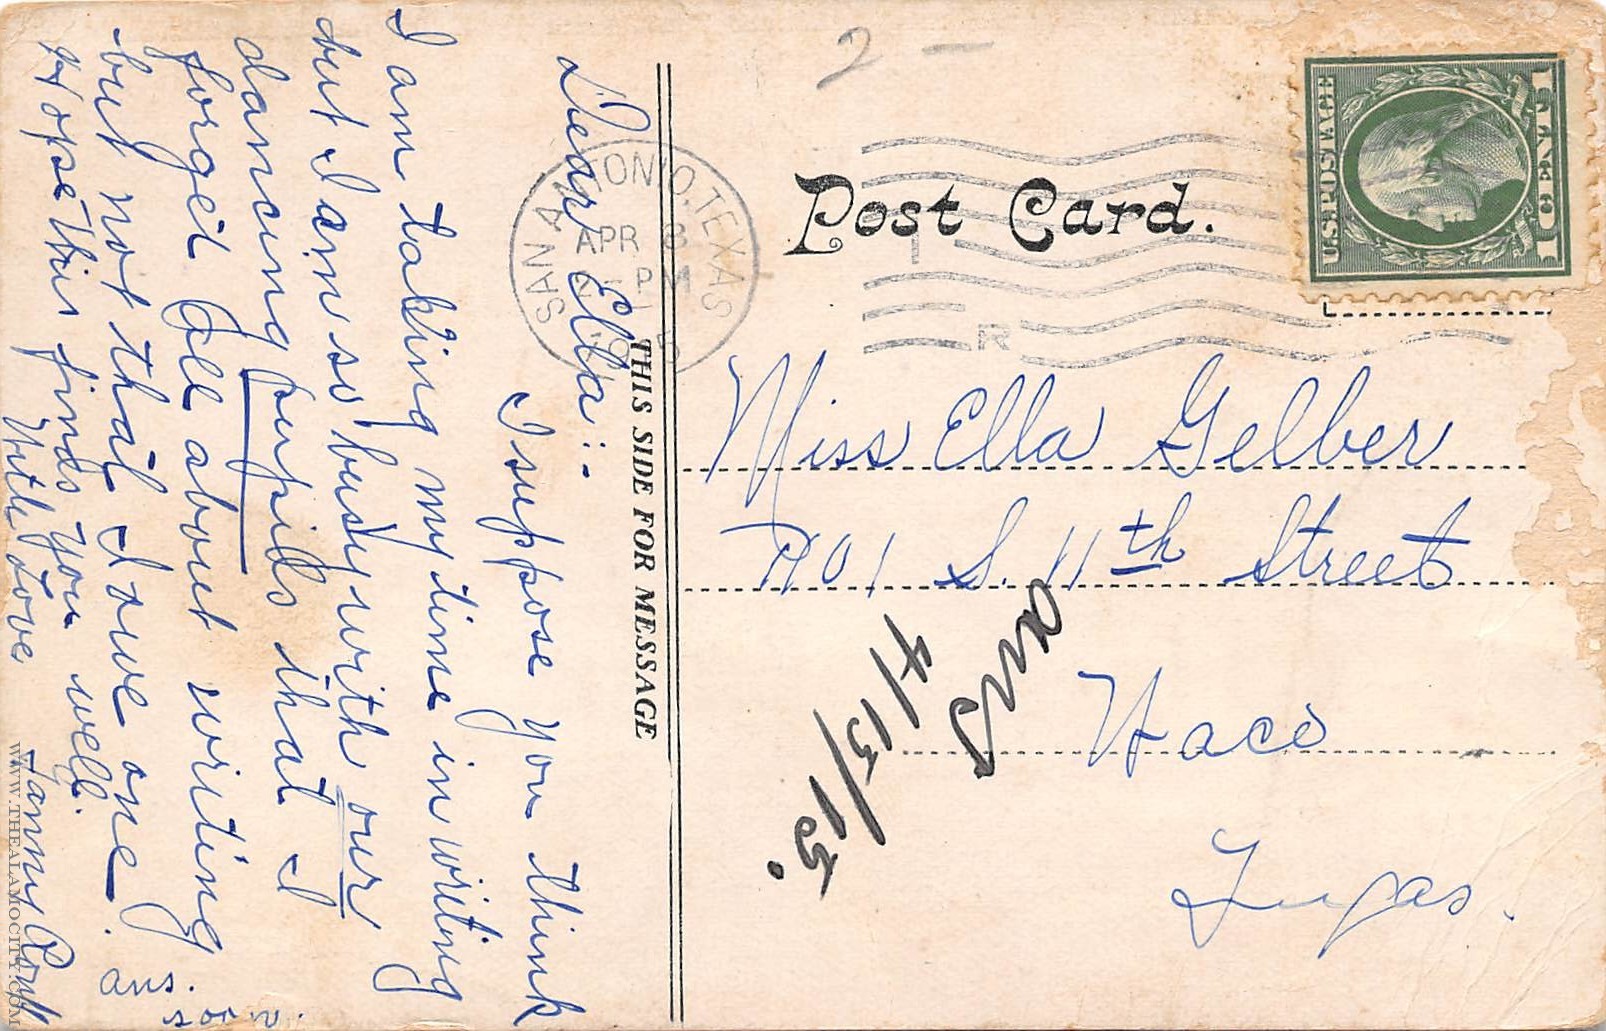 Dear Ella:-
I suppose you think
I am taking my time in writing
but I am so busy with our
dancing pupils that I
forget all about writing
but not that I owe one.
Hope this finds you well.
With Love
Fannie
ans.
soon.
THIS SIDE FOR MESSAGE
2 -
SAN ANTONIO, TEXAS
APR 8
PM
Post Card.
U.S. POSTAGE
1 CENT 1
R
Miss Ella Gelber
701 S. 11th Street
Waco
Texas.
ans
4/13/15.
WWW.THEALAMOCITY.COM